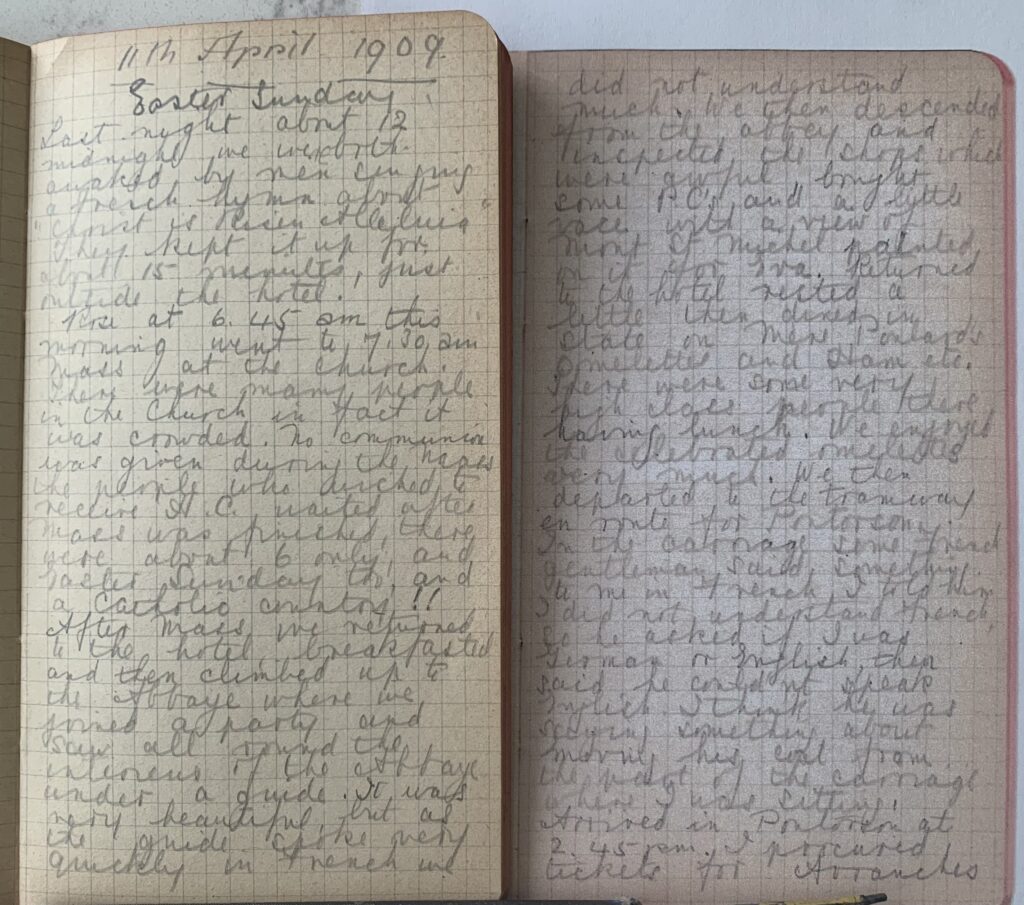 11th April 1909.
Easter Sunday.
Last night about 12
midnight we were both
awaked by men singing
a French hymn about
"Christ is Risen Alleluia"
They kept it up for
about 15 minutes, just
outside the hotel.
Rose at 6.45 am this
morning went to 7.30 am
Mass at the Church.
There were many people
in the Church in fact it
was crowded. No communion
was given during the Mass
the people who wished to
receive H.C. waited after
Mass was finished, there
were about 6 only, and
Easter Sunday too, and
a Catholic country!!
After Mass we returned
to the hotel, breakfasted
and then climbed up to
the Abbaye where we
joined a party and
saw all round the
interious of the Abbaye
under a guide. It was
very beautiful, but as
the guide spoke very
quickly in French we
did not understand
much. We then descended
from the abbey and
inspected the shops which
were awful, bought
some P.C's and a little
vase with a view of
Mont St Michel painted
on it for Iva. Returned
to the hotel rested a
little then dined in
state on Mere Poulards
Omelettes and Ham etc.
There were some very
high class people there
having lunch. We enjoyed
the celebrated omelettes
very much. We then
departed to the tramway
en route for Pontorson.
In the carriage some French
gentleman said something
to me in French I told him
I did not understand French,
so he asked if I was
German or English, then
said he could nt speak
English. I think he was
saying something about
moving his coat from
the part of the carriage
where I was sitting.
Arrived in Pontorson at
2.45 pm. I procured
tickets for Avranches